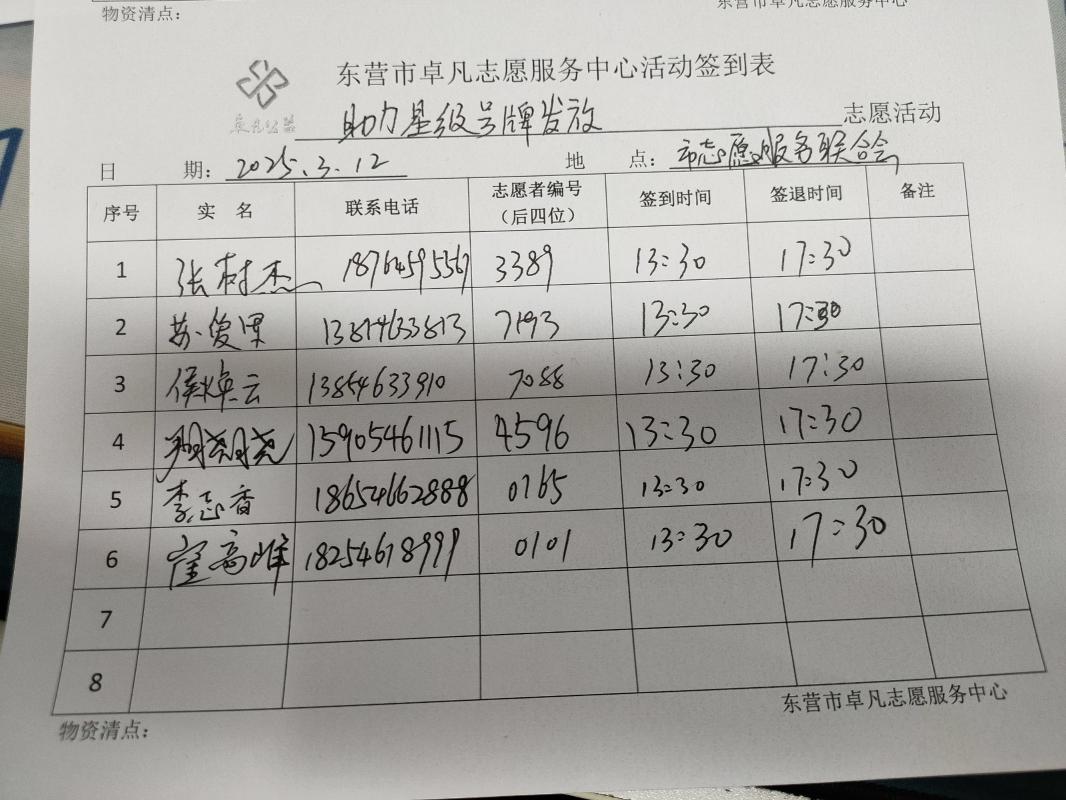 物资清点：
东营市卓凡志愿服务中心
东营市卓凡志愿服务中心活动签到表
卓凡公益
助力星级号牌发放 志愿活动
日 期：2025.3.12 地 点：市志愿服务联合会
序号 实 名 联系电话 志愿者编号（后四位） 签到时间 签退时间 备注
1 张树杰 18764595567 3389 13:30 17:30
2 苏俊 13814633813 7193 13:30 17:30
3 侯焕云 13854633910 7088 13:30 17:30
4 15905461115 4596 13:30 17:30
5 李志香 18654662888 0765 13:30 17:30
6 崔高峰 18254678999 0101 13:30 17:30
7
8
物资清点：
东营市卓凡志愿服务中心